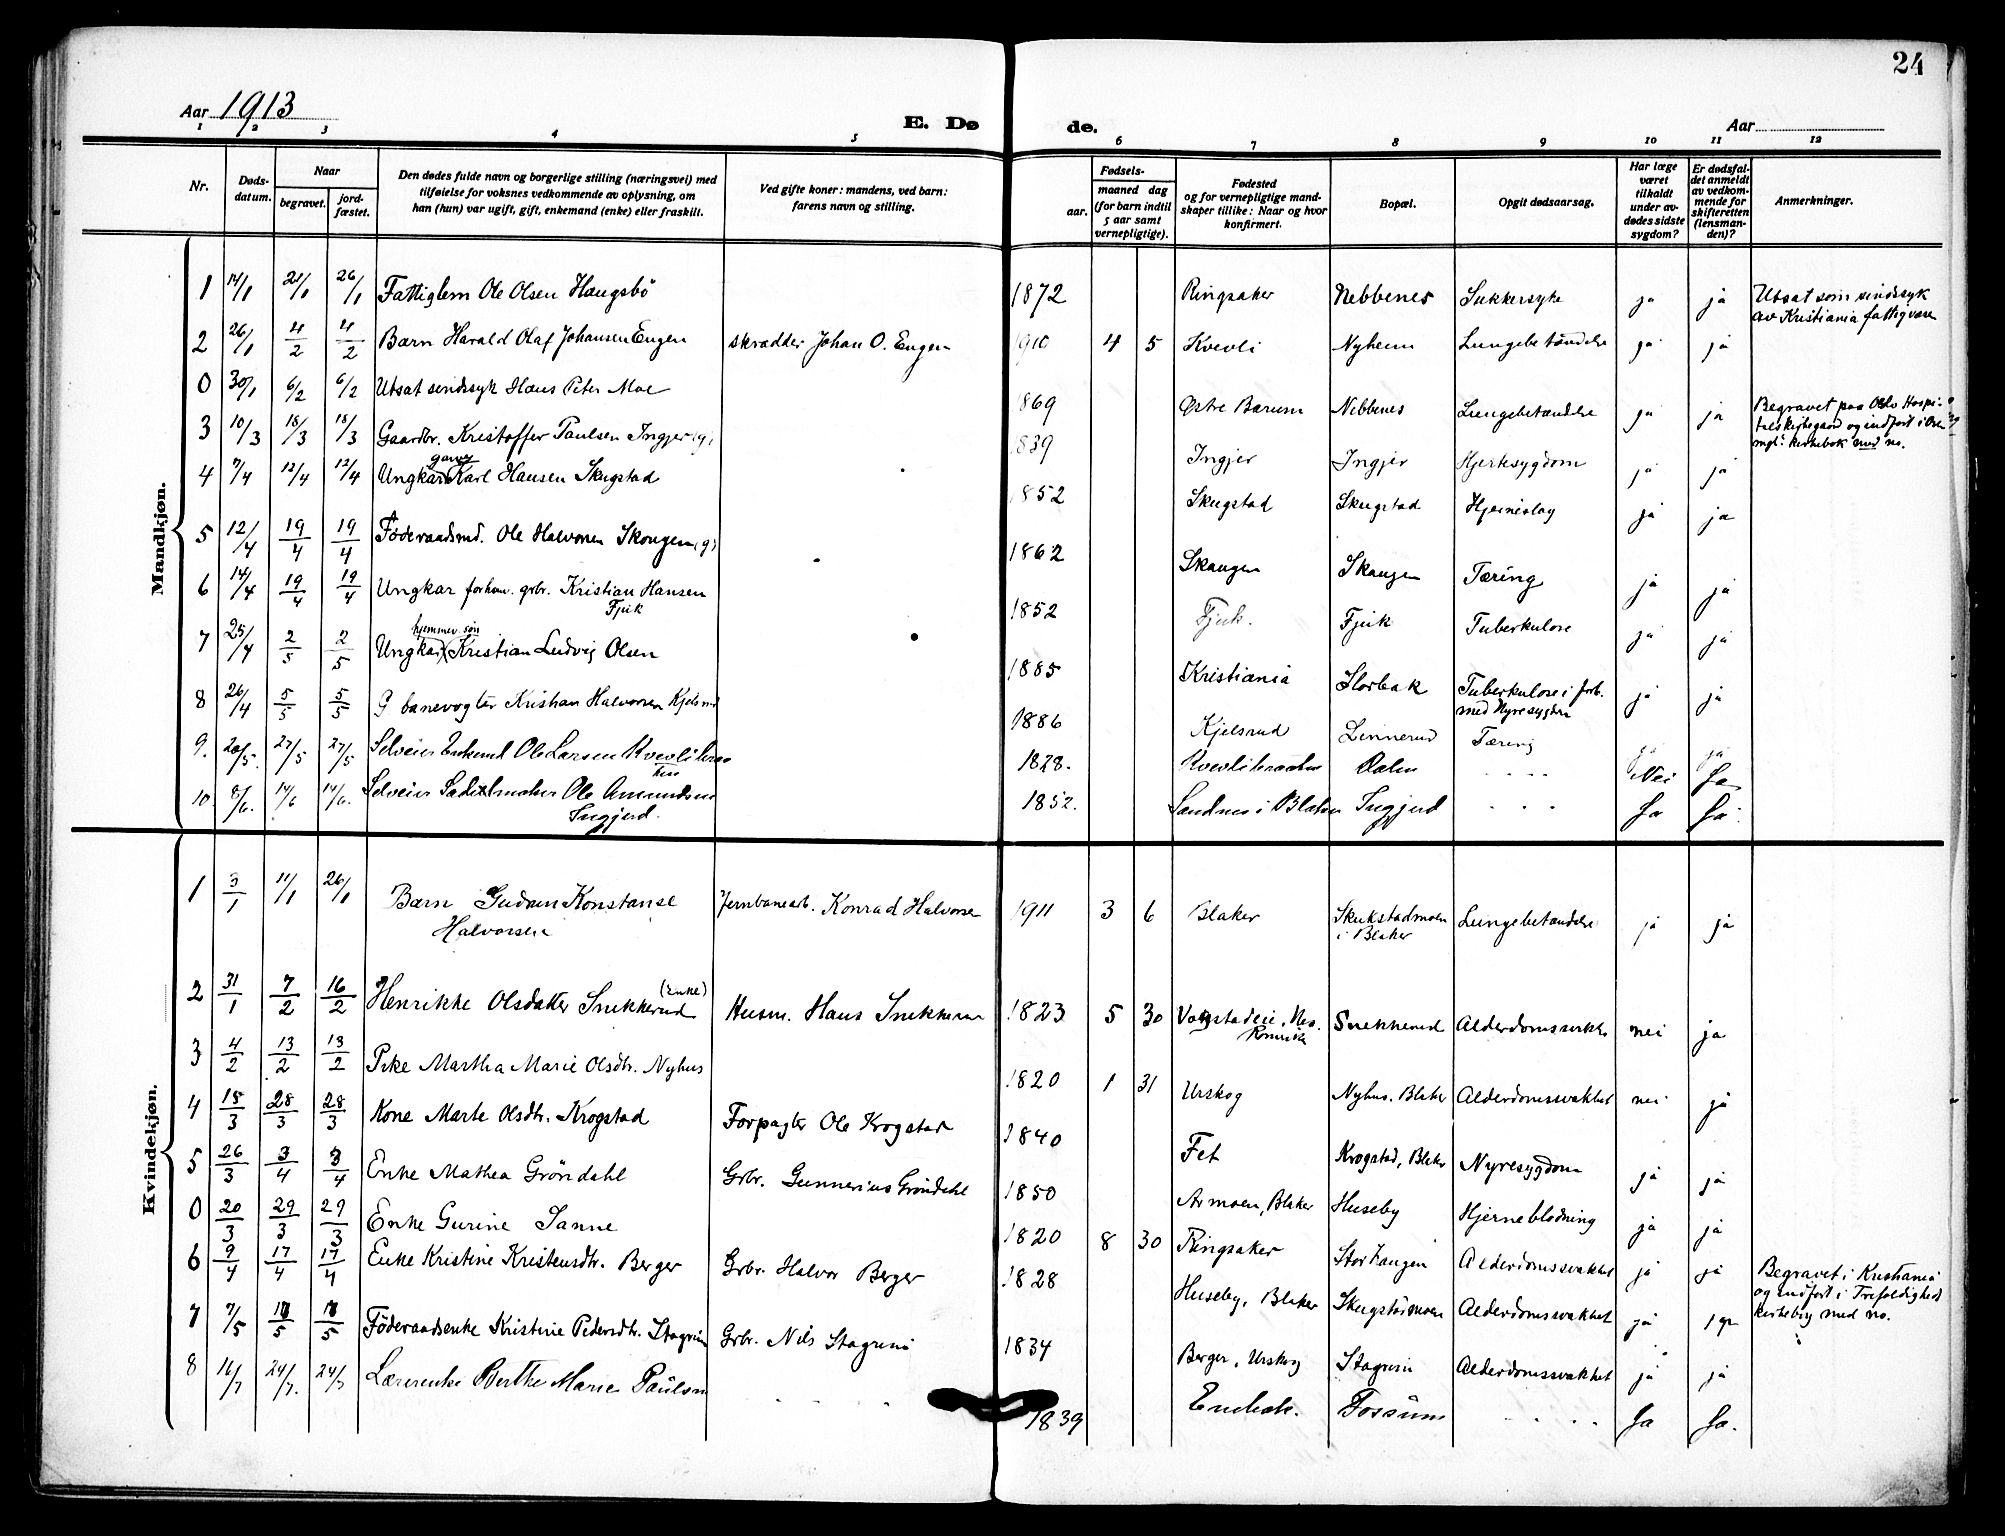 24
Aar 1913
E. Dø
de.
Aar
1 2 3 4 5 6 7 8 9 10 11 12
Nr.
Døds-
datum.
Naar
begravet.
jord-
fæstet.
Den dødes fulde navn og borgerlige stilling (næringsvei) med
tilføielse for voksnes vedkommende av oplysning, om
han (hun) var ugift, gift, enkemand (enke) eller fraskilt.
Ved gifte koner: mandens, ved barn:
farens navn og stilling.
Fødsels-
aar.
maaned dag
(for barn indtil
5 aar samt
vernepligtige).
Fødested
og for vernepligtige mand-
skaper tillike: Naar og hvor
konfirmert.
Bopæl.
Opgit dødsaarsag.
Har læge
været
tilkaldt
under av-
dødes sidste
sygdom?
Er dødsfal-
det anmeldt
av vedkom-
mende for
skifteretten
(lensman-
den)?
Anmerkninger.
Mandkjøn.
1 14/1 21/1 26/1 Fattiglem Ole Olsen Haugsbö 1872 Ringsaker Nebbenes Sukkersyke ja ja Utsat som sindssyk
av Kristiania fattigvæsen
2 26/1 4/2 4/2 Barn Harald Olaf Johansen Engen skrædder Johan O. Engen 1910 4 5 Kvevli Nyheim Lungebetændelse ja ja
0 30/1 6/2 6/2 Utsat sindssyk Hans Peter Moe 1869 Østre Bærum Nebbenes Lungebetændelse ja ja Begravet paa Oslo Hospi-
talskirkegaard og indført i
kirkebok med no.
3 10/3 18/3 18/3 Gaardbr. Kristoffer Paulsen Ingjer (g) 1839 Ingjer Ingjer Hjertesygdom ja ja
4 7/4 12/4 12/4 Ungkar Karl Hansen Skugstad 1852 Skugstad Skugstad Hjerneslag ja ja
5 12/4 19/4 19/4 Føderaadsmd. Ole Halvorsen Skougen (g) 1862 Skaugen Skaugen Tæring ja ja
6 14/4 19/4 19/4 Ungkar forhen. grbr. Kristian Hansen
Fjuk 1852 Fjuk. Fjuk Tuberkulose ja ja
hjemmev. søn
7 25/4 2/5 2/5 Ungkar Kristian Ludvig Olsen 1885 Kristiania Slorbak Tuberkulose i forb.
med Nyresygdom ja ja
8 26/4 5/5 5/5 G banevogter Kristian Halvorsen Kjelsrud 1886 Kjelsrud Linnerud Tæring ja ja
9. 20/5. 27/5 27/5 Selveier Enkemd Ole Larsen Kvevlibraa-
ten 1828. Kvevlibraaten Dalen " " Nei Ja
10. 8/6. 14/6 14/6. Selveier Sadelmaker Ole Amundsen
Ingjerd. 1852. Sandnes i Blaker Ingjerd " " Ja Ja.
Kvindekjøn.
1 3/1 11/1 26/1 Barn Gudrun Konstanse
Halvorsen Jernbanearb. Konrad Halvorsen 1911 3 6 Blaker Skukstadmoen
i Blaker Lungebetændelse ja ja
2 31/1 7/2 16/2 Henrikke Olsdatter Snekkerud (Enke) Husm. Hans Snekkerud 1823 5 30 Nes.
Romerike Snekkerud Alderdomssvakhet nei ja
3 4/2 13/2 13/2 Pike Martha Marie Olsdtr. Nyhus 1820 1 31 Urskog Nyhus. Blaker Alderdomssvakhet nei ja
4 18/3 28/3 28/3 Kone Marte Olsdtr. Krogstad Forpagter Ole Krogstad 1840 Fet Krogstad, Blaker Nyresygdom ja ja
5 26/3 3/4 3/4 Enke Mathea Gröndahl Grbr. Gunnerius Gröndahl 1850 Armoen, Blaker Huseby Hjerneblødning ja ja
0 20/3 29/3 29/3 Enke Gurine Sanne 1820 8 30 Ringsaker Alderdomssvakhet ja ja Begravet i Kristiania
og indført i Trefoldighed
kirkebog med no.
6 9/4 17/4 17/4 Enke Kristine Kristensdtr. Berger Grbr. Halvor Berger 1828 Huseby, Blaker Skugstadmoen Alderdomssvakhet ja ja
7 7/5 18/5 18/5 Føderaadsenke Kristine Pedersdtr. Stagrim Grbr. Nils Stagrim 1834 Berger, Urskog Stagrim Alderdomssvakhet ja ja
8 16/7 24/7. 24/7 Lærerenke Berthe Marie Paulsen " " 1839 Enebak. Fossum " " Ja Ja.